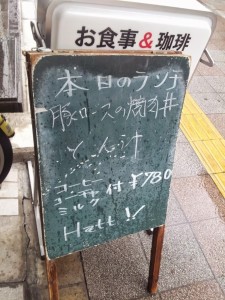 お食事&珈琲
本日のランチ
豚ロースの焼肉丼
とん汁
コーヒー
コーラ
ミルク 付 ¥780
Hott!!